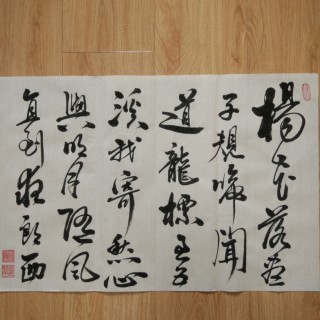 楊花落盡
子規啼聞
道龍標過五
溪我寄愁心
與明月隨風
直到夜郎西